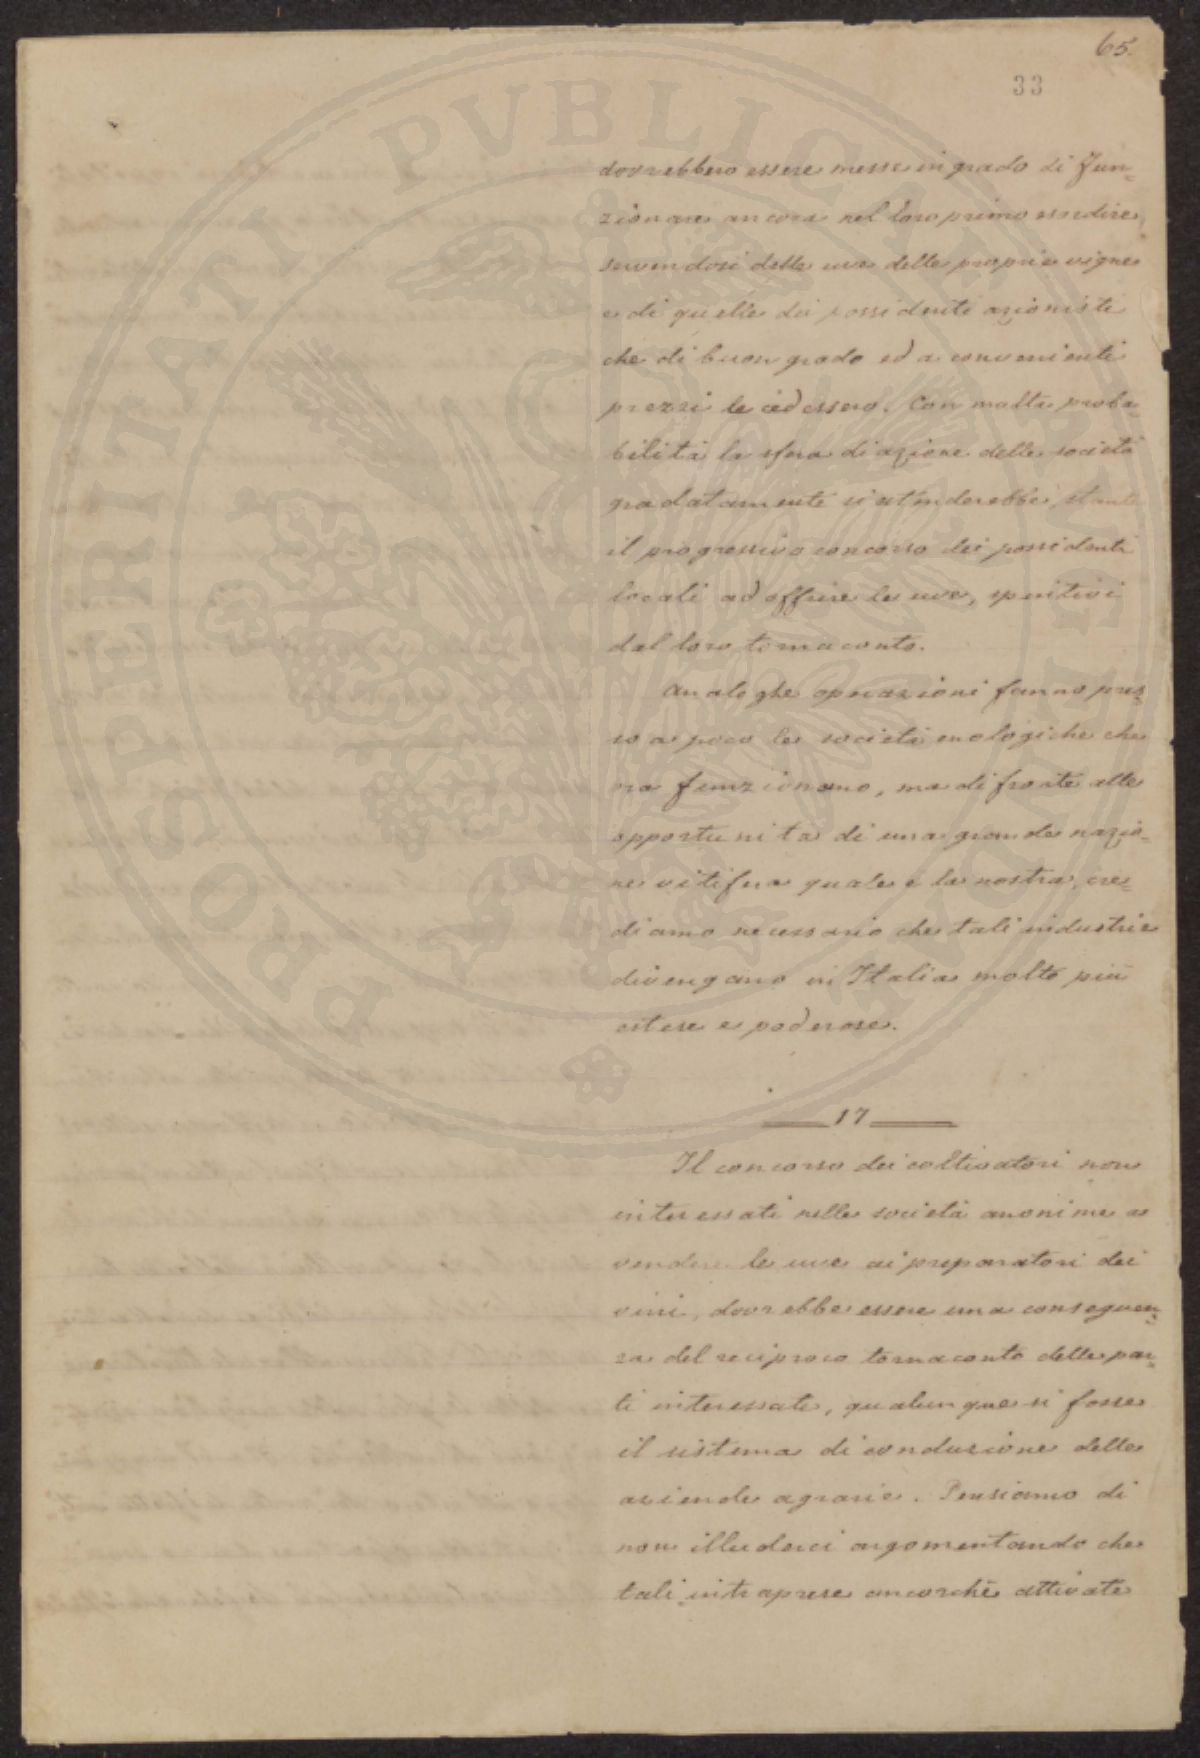 65.
33
dovrebbero essere messe in grado di fun=
zionare ancora nel loro primo esordire,
servendosi delle uve delle proprie vigne
e di quelle dei possidenti azionisti
che di buon grado ed a convenienti
prezzi le cedessero. Con molta proba=
bilità la sfera di azione delle società
gradatamente si estenderebbe, stante
il progressivo concorso dei possidenti
locali ad offrire le uve, spintivi
dal loro tornaconto.
Analoghe operazioni fanno pres=
so a poco le società enologiche che
ora funzionano, ma di fronte alle
opportunità di una grande nazio=
ne vitifera quale è la nostra, cre=
diamo necessario che tali industrie
divengano in Italia molto più
estese e poderose.
17
Il concorso dei coltivatori non
interessati nelle società anonime a
vendere le uve ai preparatori dei
vini, dovrebbe essere una conseguen=
za del reciproco tornaconto delle par=
ti interessate, qualunque si fosse
il sistema di conduzione delle
aziende agrarie. Pensiamo di
non illuderci argomentando che
tali intraprese ancorchè attivate
PROSPERITATI PVBLICAE AVGENDAE